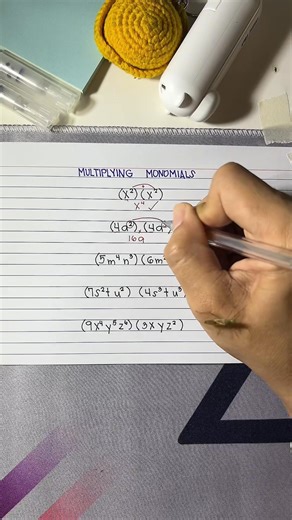 MULTIPLYING MONOMIALS
(x²)(x²)
x⁴ ✓
(4a³)(4a
16a
(5m⁴n³)(6m²
(7s²+u²) (4s³+u³)
(9x⁴y⁵z⁶)(3xyz²)